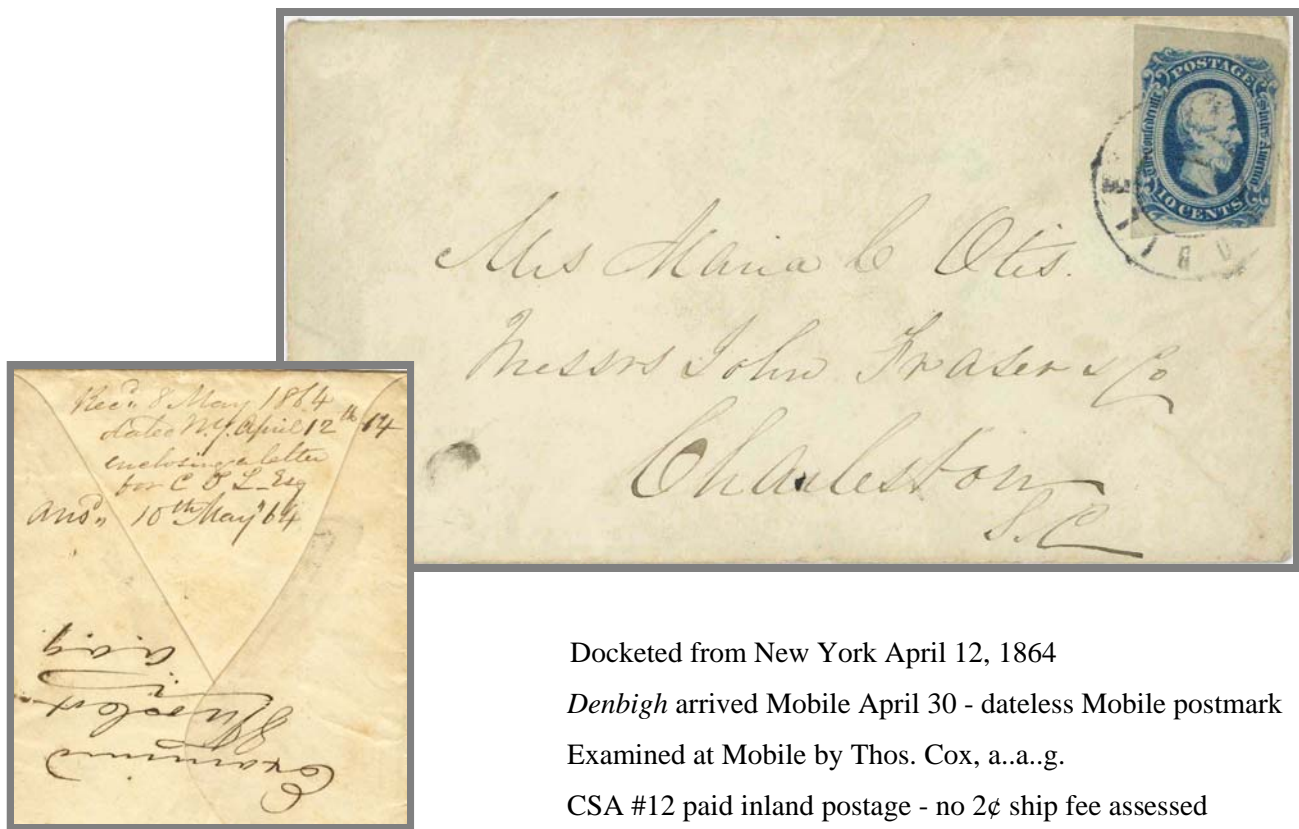 POSTAGE
The Confederate States America
10 CENTS
Mrs Maria C Otis.
Messrs John Fraser & Co
Charleston
S.C
Rec'd 8 May 1864
dated N.Y. April 12th 64
enclosing a letter
for C L Esq
Ansd 10th May 64
Examined
a.a.g.
Docketed from New York April 12, 1864
Denbigh arrived Mobile April 30 - dateless Mobile postmark
Examined at Mobile by Thos. Cox, a..a..g.
CSA #12 paid inland postage - no 2¢ ship fee assessed